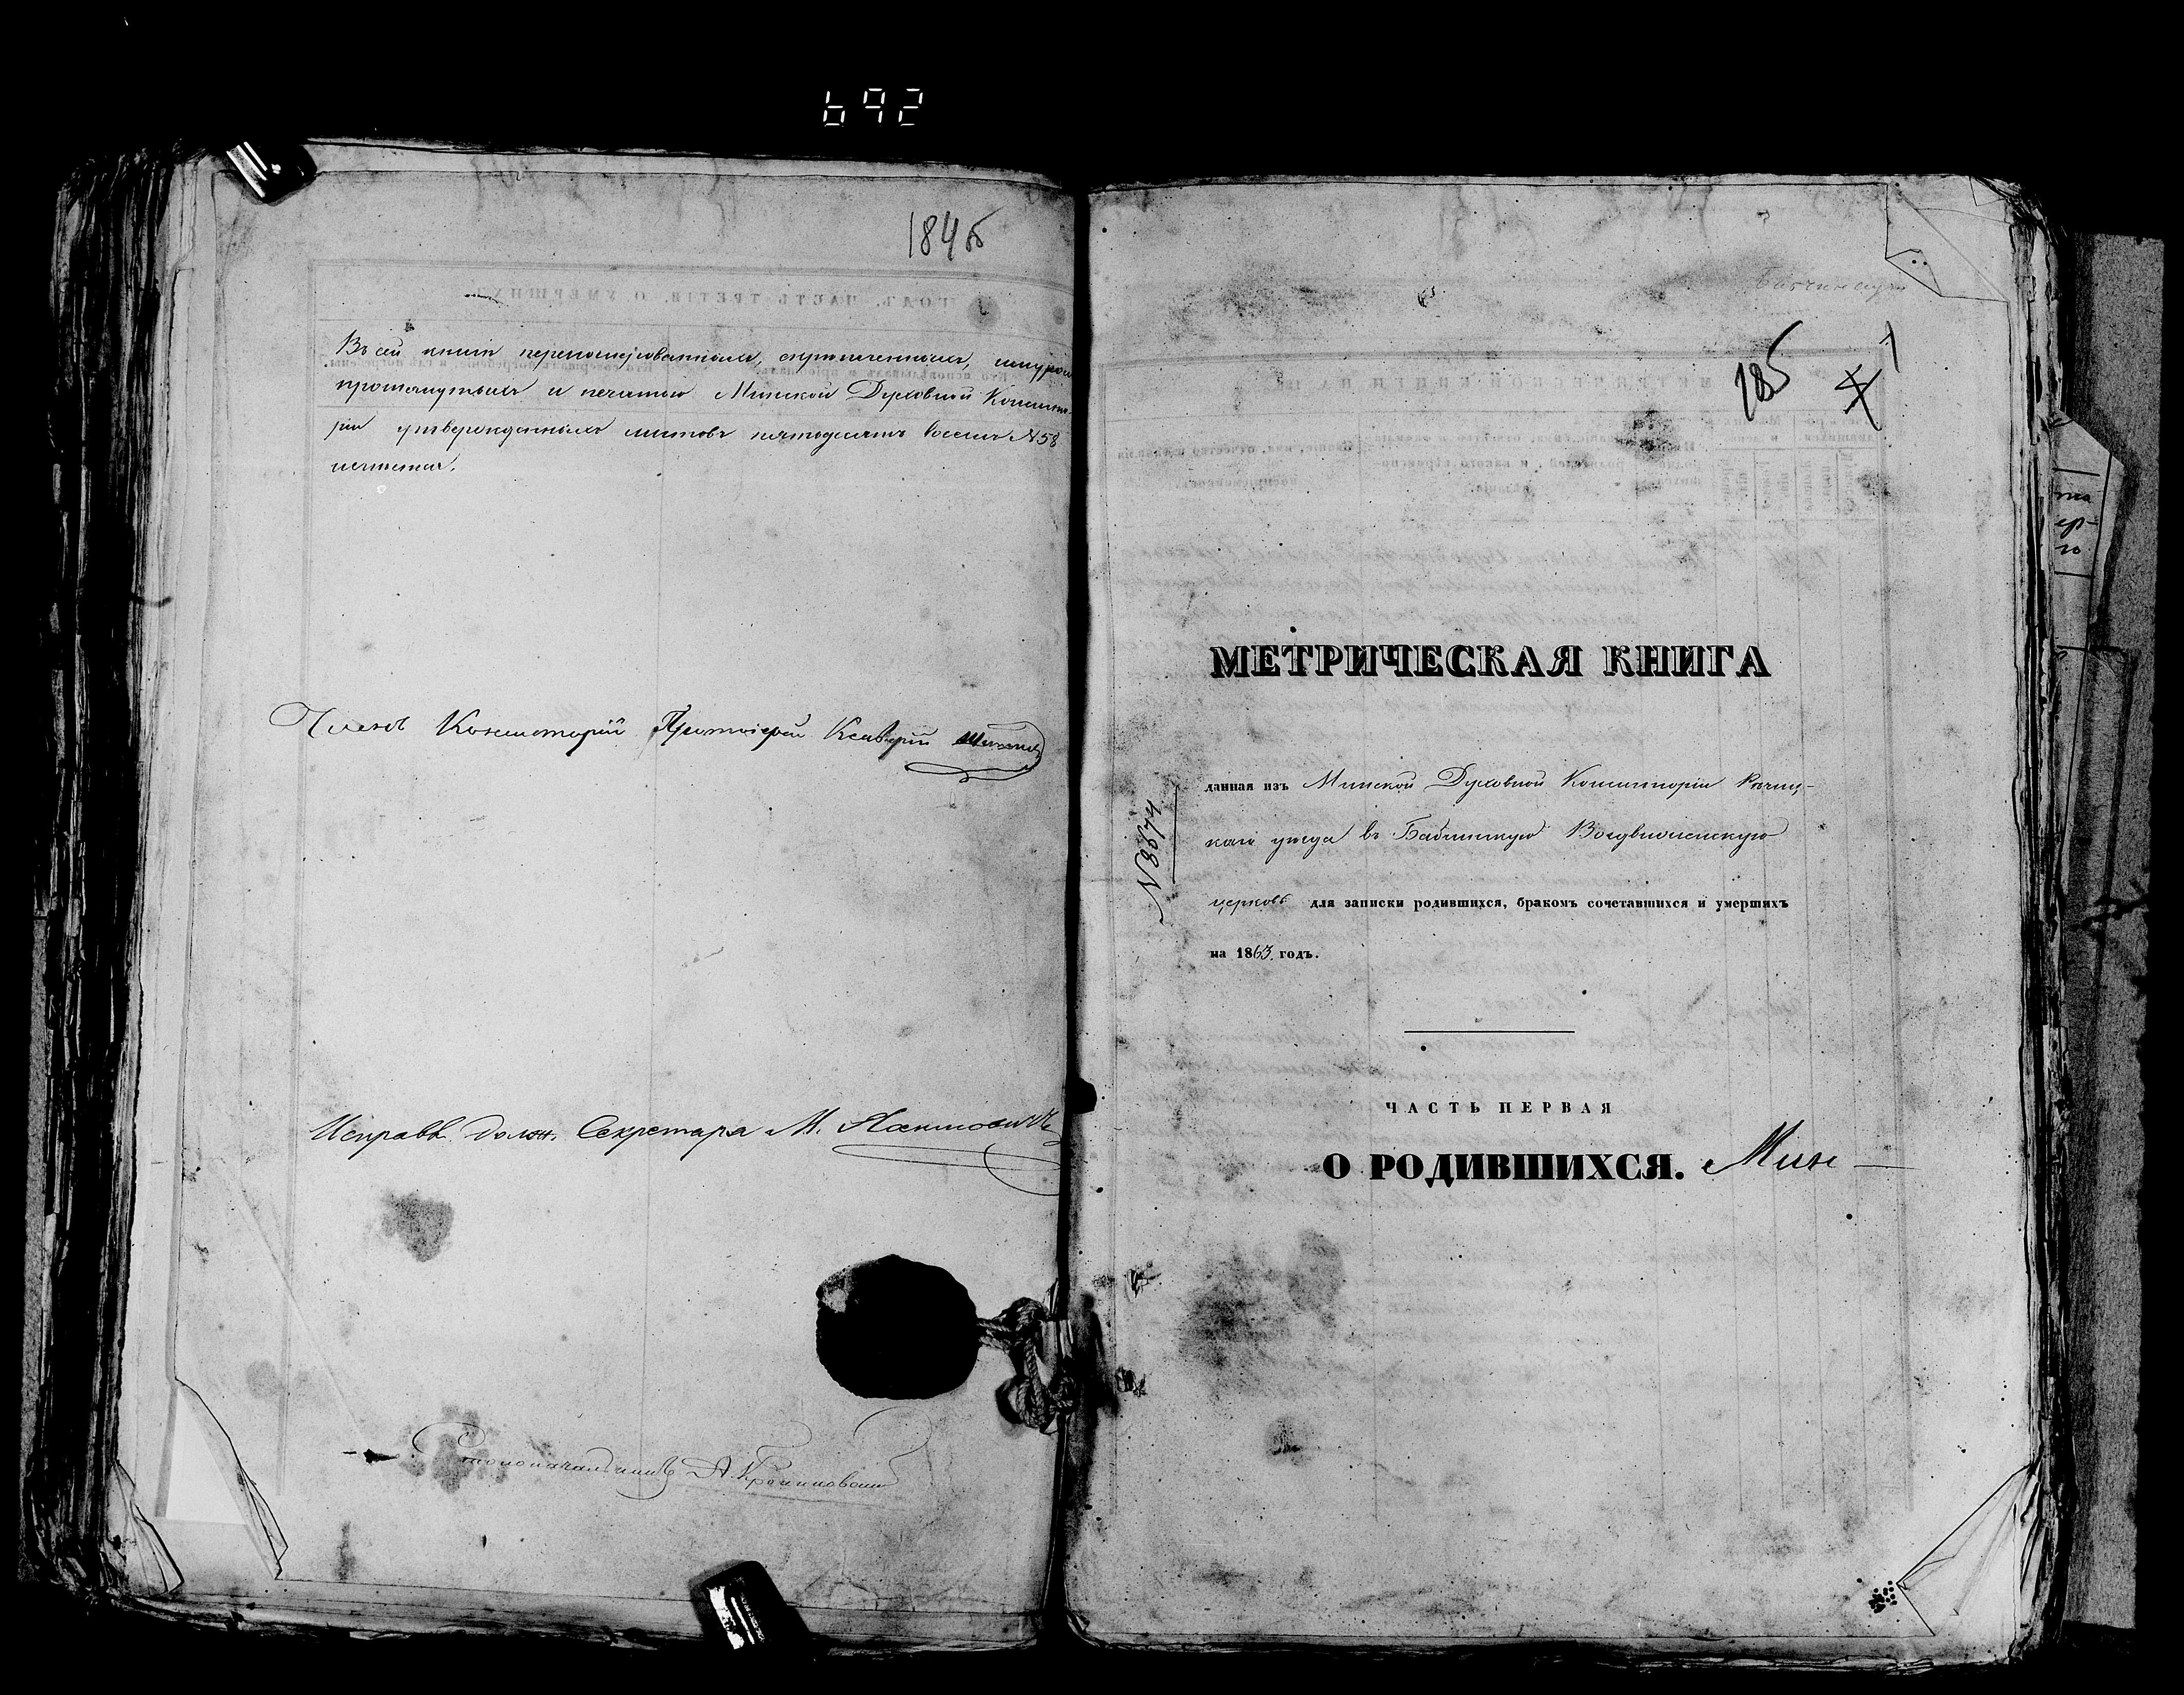 692
184 об
Въ сей книгѣ перенумерованныхъ, скрѣпленныхъ, шнуромъ
протянутыхъ и печатью Минской Духовной Консисто-
ріи утвержденныхъ листовъ пятьдесятъ восемь №58
Членъ Консисторіи Протоіерей Ксаверій
Исправл. долж. Секретаря М.
Столоначальникъ А.
185
1
МЕТРИЧЕСКАЯ КНИГА
№ 8674
данная изъ Минской Духовной Консисторіи Рѣчиц-
каго уѣзда въ Бабчинскую Воздвиженскую
церковь для записки родившихся, бракомъ сочетавшихся и умершихъ
на 1863. годъ.
ЧАСТЬ ПЕРВАЯ
О РОДИВШИХСЯ. Мин